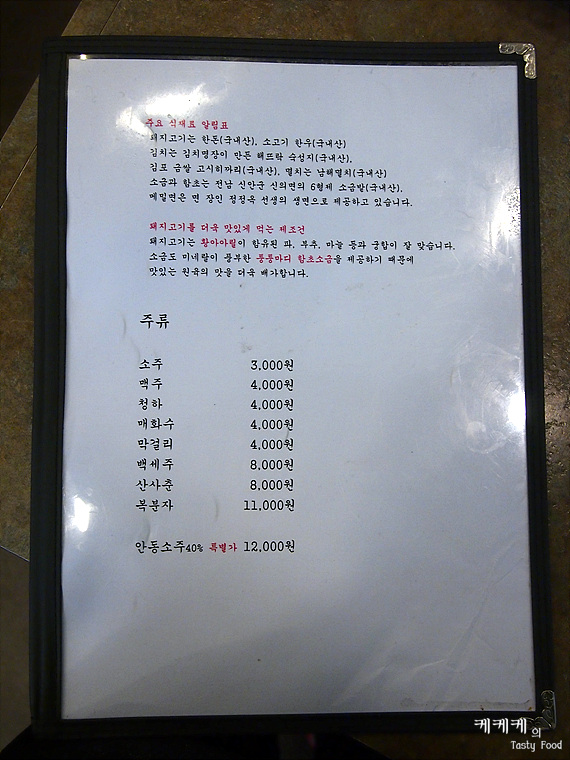 주요 식재료 알림표
돼지고기는 한돈(국내산), 소고기 한우(국내산)
김치는 김치명장이 만든 해뜨락 숙성지(국내산),
김포 금쌀 고시히까리(국내산), 멸치는 남해멸치(국내산)
소금과 함초는 전남 신안군 신의면의 6형제 소금밭(국내산),
메밀면은 면 장인 정정옥 선생의 생면으로 제공하고 있습니다.
돼지고기를 더욱 맛있게 먹는 제조건
돼지고기는 황아아릴이 함유된 파, 부추, 마늘 등과 궁합이 잘 맞습니다.
소금도 미네랄이 풍부한 퉁퉁마디 함초소금을 제공하기 때문에
맛있는 원육의 맛을 더욱 배가합니다.
주류
소주 3,000원
맥주 4,000원
청하 4,000원
매화수 4,000원
막걸리 4,000원
백세주 8,000원
산사춘 8,000원
복분자 11,000원
안동소주40% 특별가 12,000원
케케케의
Tasty Food